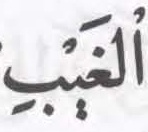 الْغَيْبِ